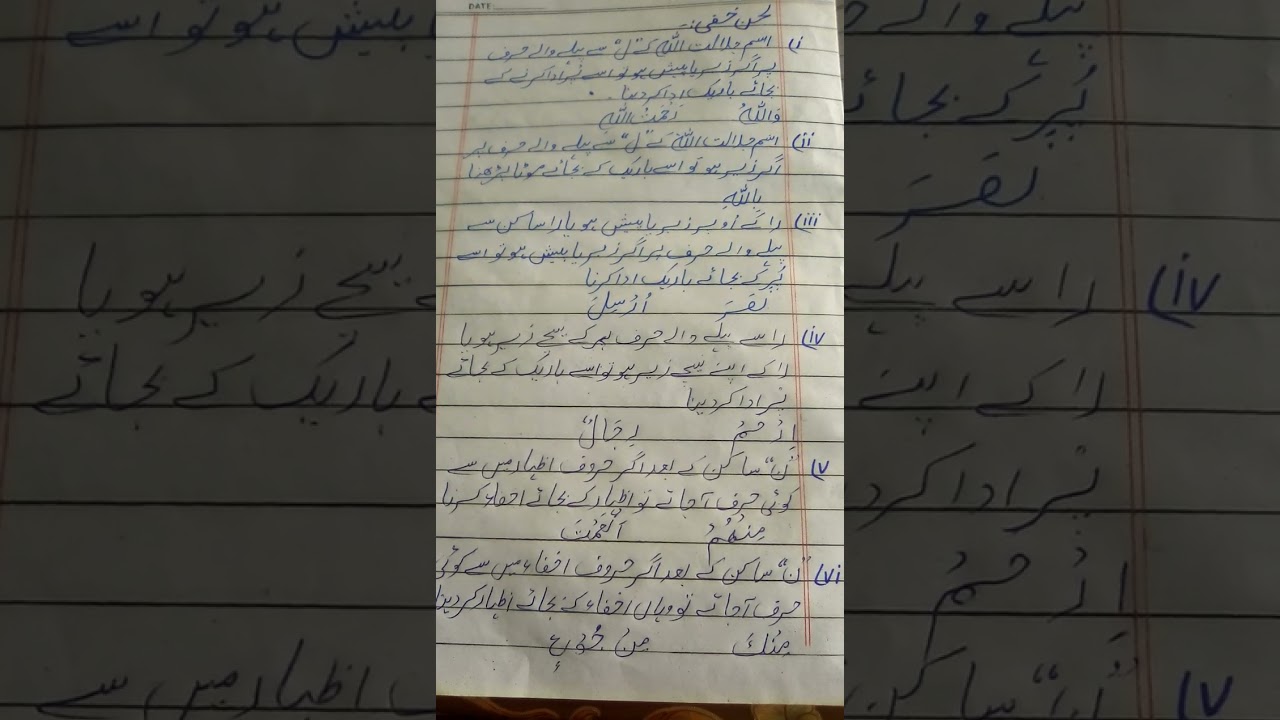 DATE
لحن خفی:-
(i اسم جلالت اللہ کے "ل" سے پہلے والے حرف
پر اگر زبر یا پیش ہو تو اسے پُر ادا کرنے کے
بجائے باریک ادا کر دینا۔
وَاللّٰهُ نِعْمَتُ اللّٰهِ
(ii اسم جلالت اللہ کے "ل" سے پہلے والے حرف پر
اگر زیر ہو تو اسے باریک کے بجائے موٹا پڑھنا
بِاللّٰهِ
(iii را کے اوپر زبر یا پیش ہو یا را ساکن سے
پہلے والے حرف پر اگر زبر یا پیش ہو تو اسے
پُر کے بجائے باریک ادا کرنا
اُرْسِلَ
(iv را سے پہلے والے حرف کے نیچے زیر ہو یا
را کے اپنے نیچے زیر ہو تو اسے باریک کے بجائے
پُر ادا کر دینا
رِجَالٌ
(v "ن" ساکن کے بعد اگر حروف اظہار میں سے
کوئی حرف آ جائے تو اظہار کے بجائے اخفاء کرنا
مِنْهُمْ اَنْعَمْتَ
(vi "ن" ساکن کے بعد اگر حروف اخفاء میں سے کوئی
حرف آ جائے تو وہاں اخفاء کے بجائے اظہار کر دینا
مِنْكَ مِنْ جُوْعٍ